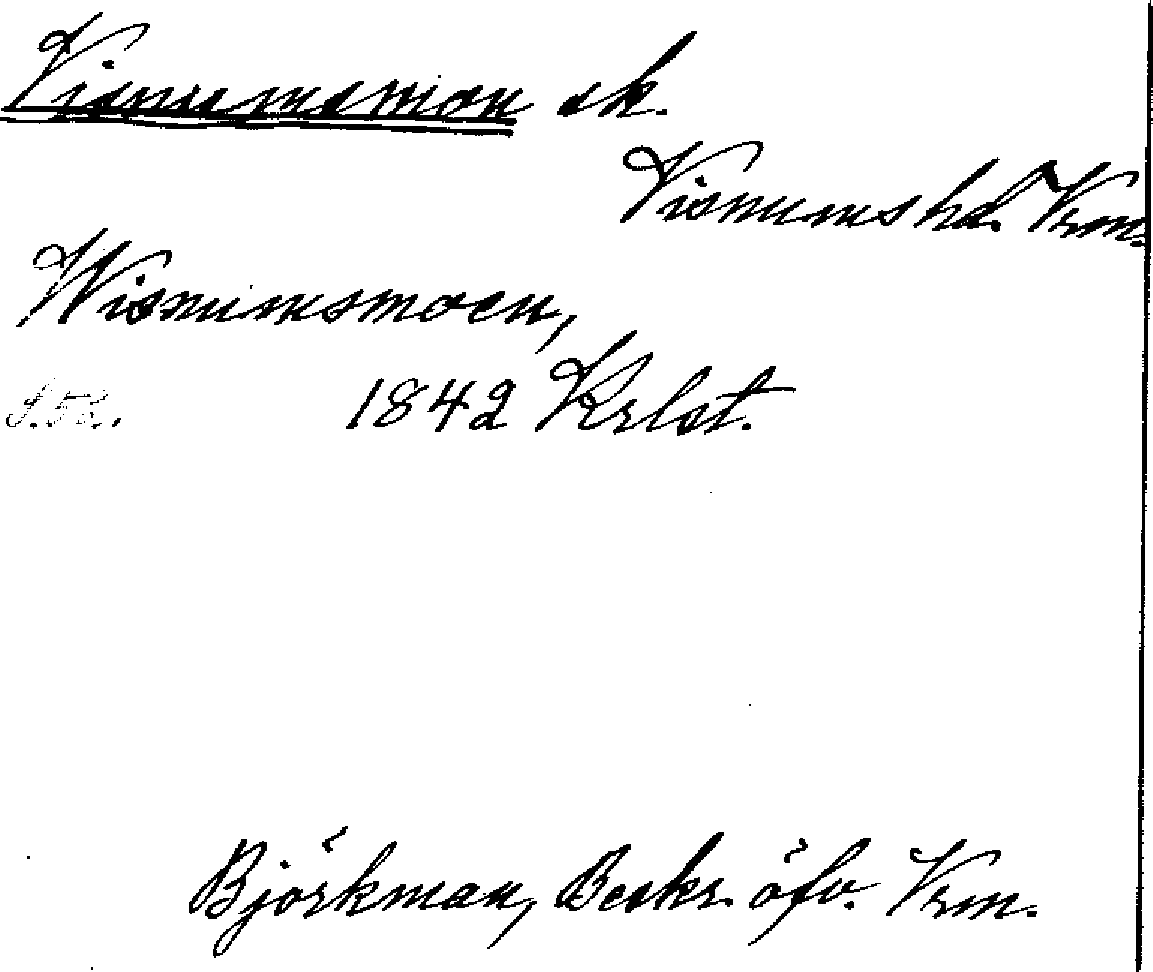 Visnumsmon sk.
Visnums hd. Vrm.
Wisnumsmoen,
S. 52. 1842 Krlst.
Björkman, Beskr. öfv. Vrm.